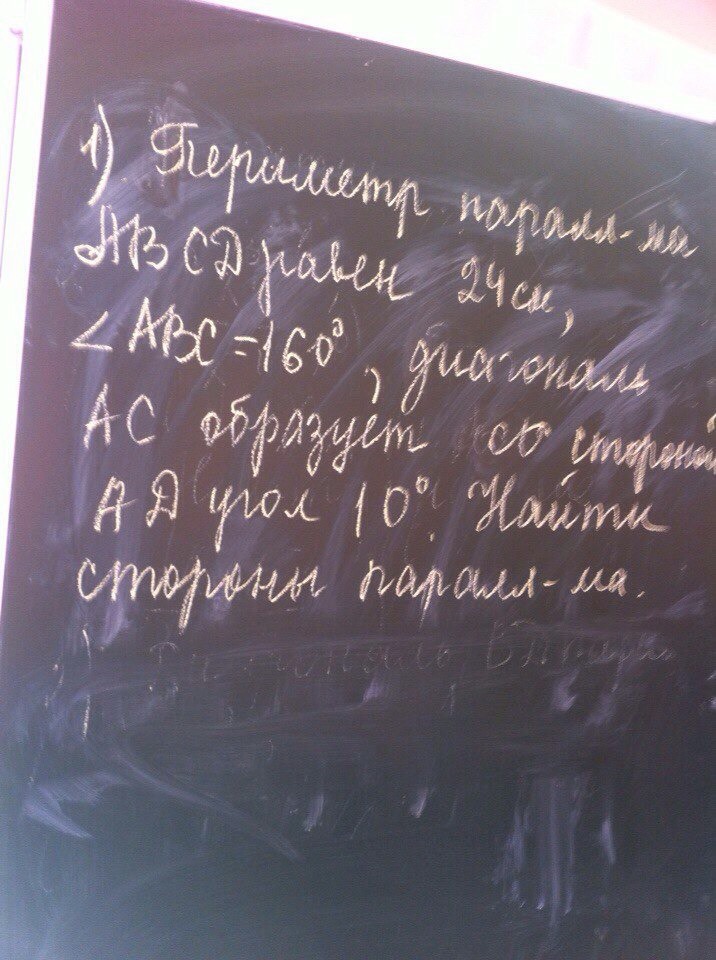 1) Периметр паралл-ма
ABCD равен 24 см,
∠ABC=160°, диагональ
AC образует со стороной
AD угол 10°. Найти
стороны паралл-ма.
2)